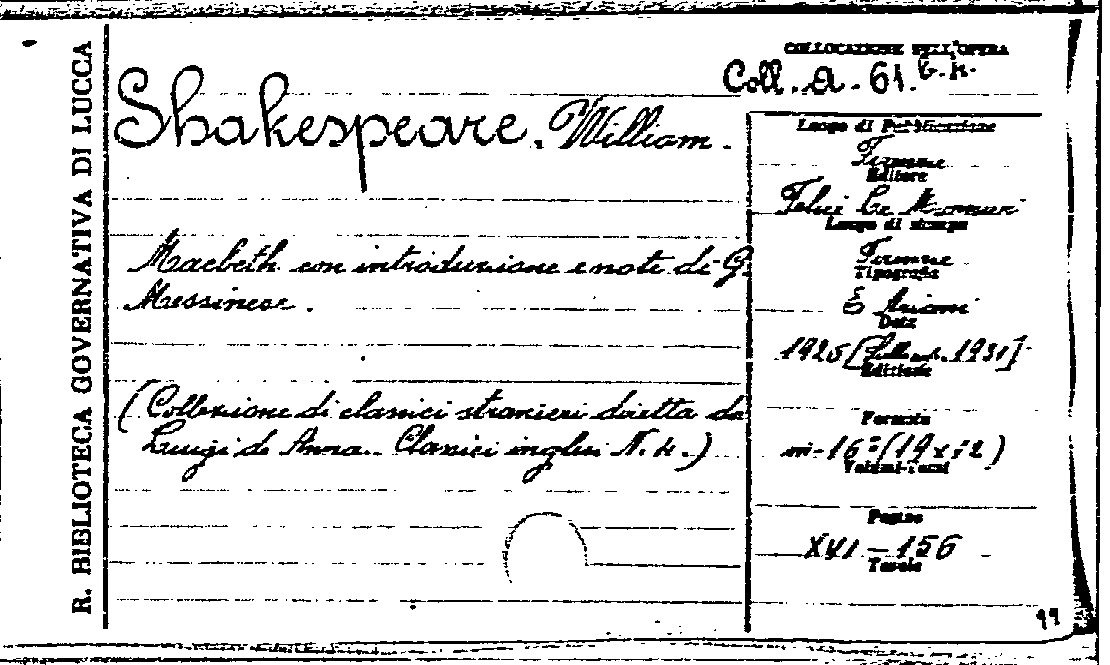 R. BIBLIOTECA GOVERNATIVA DI LUCCA
COLLOCAZIONE DELL'OPERA
Coll. A. 61. 6.4.
Shakespeare, William.
Macbeth con introduzione e note di G.
Messinese.
(Collezione di classici stranieri diretta da
Luigi de Anna. Classici inglesi N. 4.)
Luogo di Pubblicazione
Firenze
Editore
Felice Le Monnier
Luogo di stampa
Firenze
Tipografia
E Ariani
Data
1925 1931]
Edizione
Formato
in-16° (19x12)
Volumi-Tomi
Pagine
XVI-156
Tavole